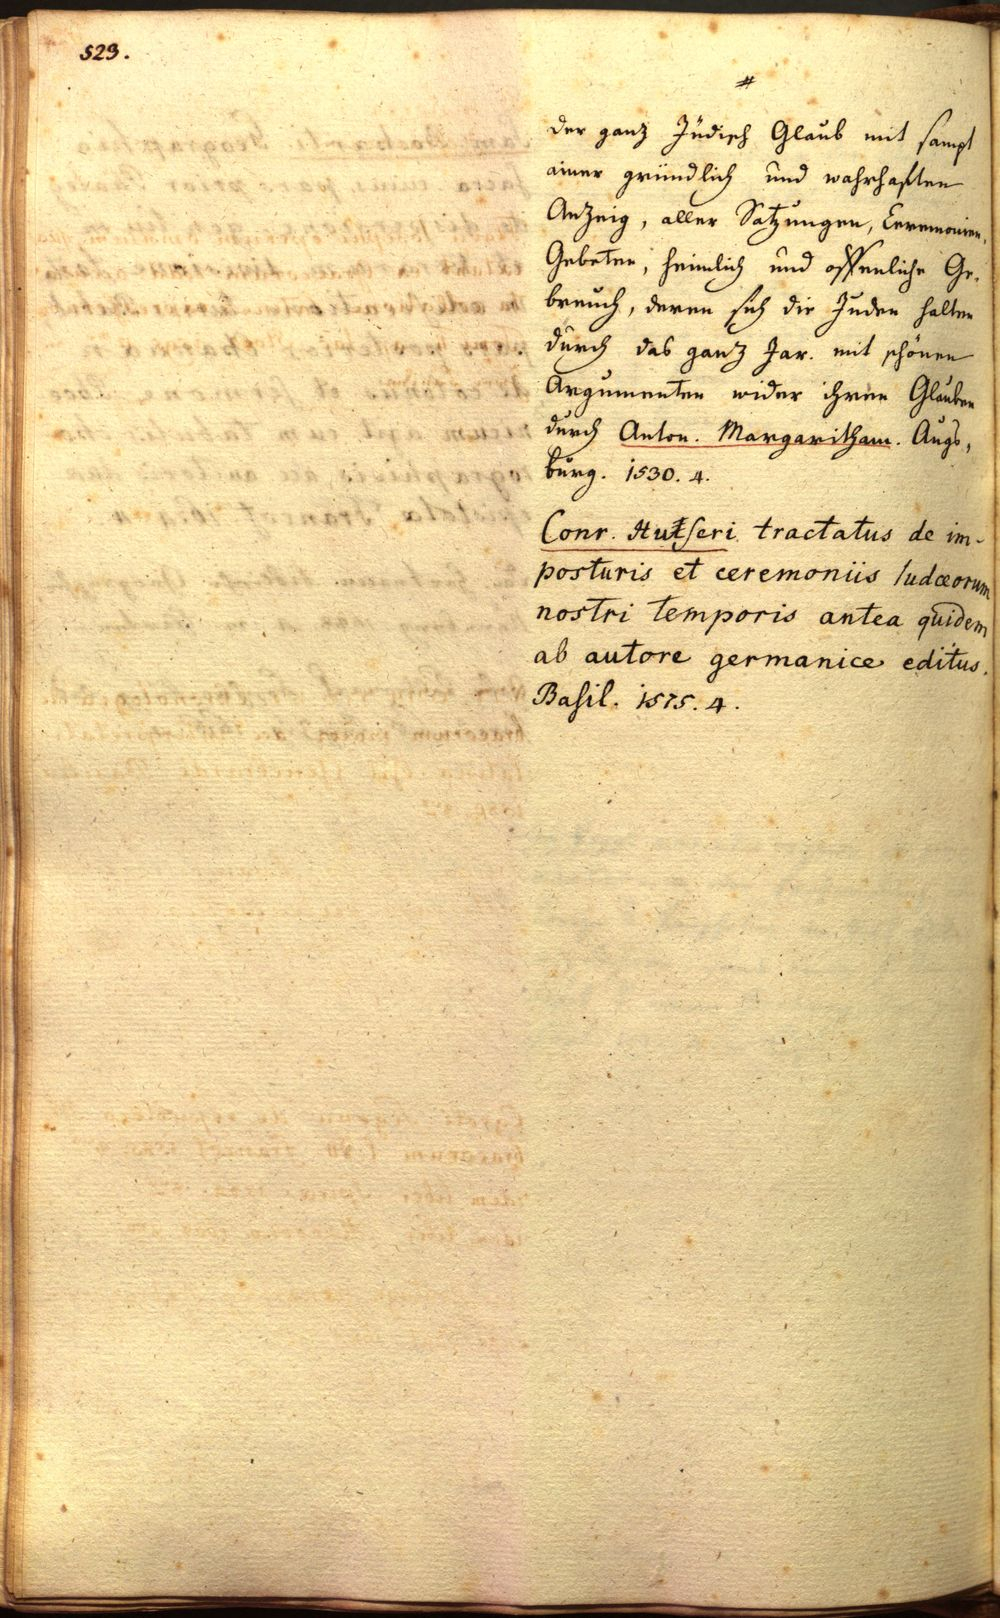 523.
#
der ganz Jüdisch Glaub mit sampt
ainer gründlich und wahrhafften
Anzeig, aller Satzungen, Ceremonien,
Gebeten, heimlich und offenliche Ge-
breuch, deren sich die Juden halten
durch das ganz Jar. mit schönen
Argumenten wider ihren Glauben
durch Anton. Margaritham. Augs,
burg. 1530. 4.
Conr. Hutseri tractatus de im-
posturis et ceremoniis Iudæorum
nostri temporis antea quidem
ab autore germanice editus.
Basil. 1575. 4.